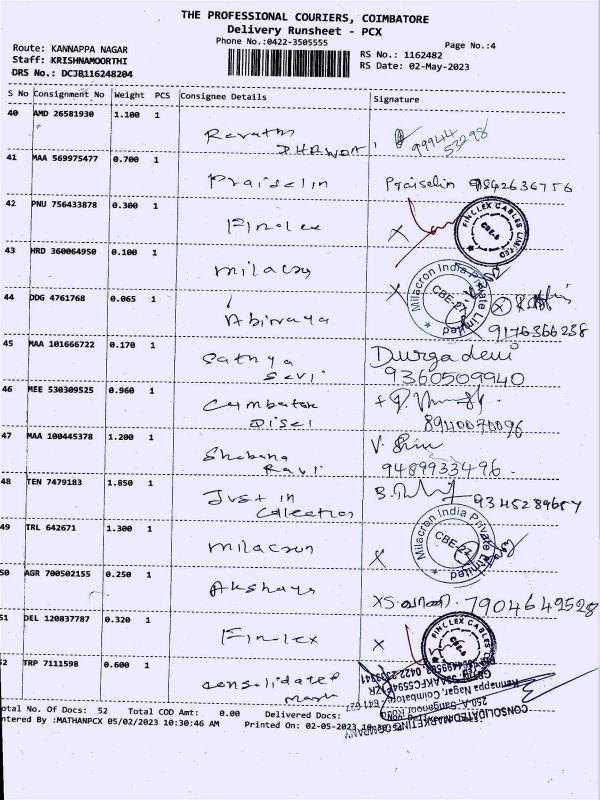 THE PROFESSIONAL COURIERS, COIMBATORE
Delivery Runsheet - PCX
Phone No.:0422-3505555
Page No.:4
Route: KANNAPPA NAGAR
Staff: KRISHNAMOORTHI
DRS No.: DCJB116248204
RS No.: 1162482
RS Date: 02-May-2023
S No Consignment No Weight PCS Consignee Details Signature
40 AMD 26581930 1.100 1
Revathi
99944
53298
41 MAA 569975477 0.700 1
Praiselin Praiselin 9842636756
42 PNU 756433878 0.300 1
Finolex X
FINOLEX CABLES LIMITED
CBE-6
43 HRD 360064950 0.100 1
milacron X
Milacron India Private Limited
CBE-27
44 DDG 4761768 0.065 1
Abinaya
9176366238
45 MAA 101666722 0.170 1
Sathya Durgadevi
Selvi 9360509940
46 MEE 530309525 0.960 1
8940070096
47 MAA 100445378 1.200 1
Shobana
Ravi 9489933496
48 TEN 7479183 1.850 1
Just in
Collection
49 TRL 642671 1.300 1
milacron X
Milacron India Private Limited
CBE-27
50 AGR 700502155 0.250 1
Akshaya 7904649528
51 DEL 120837787 0.320 1
Finolex X
FINOLEX CABLES
52 TRP 7111598 0.600 1
consolidated
CONSOLIDATED MARKETING COMPANY
Kannappa Nagar, Coimbatore
Total No. Of Docs: 52 Total COD Amt: 0.00 Delivered Docs:
Entered By :MATHANPCX 05/02/2023 10:30:46 AM Printed On: 02-05-2023